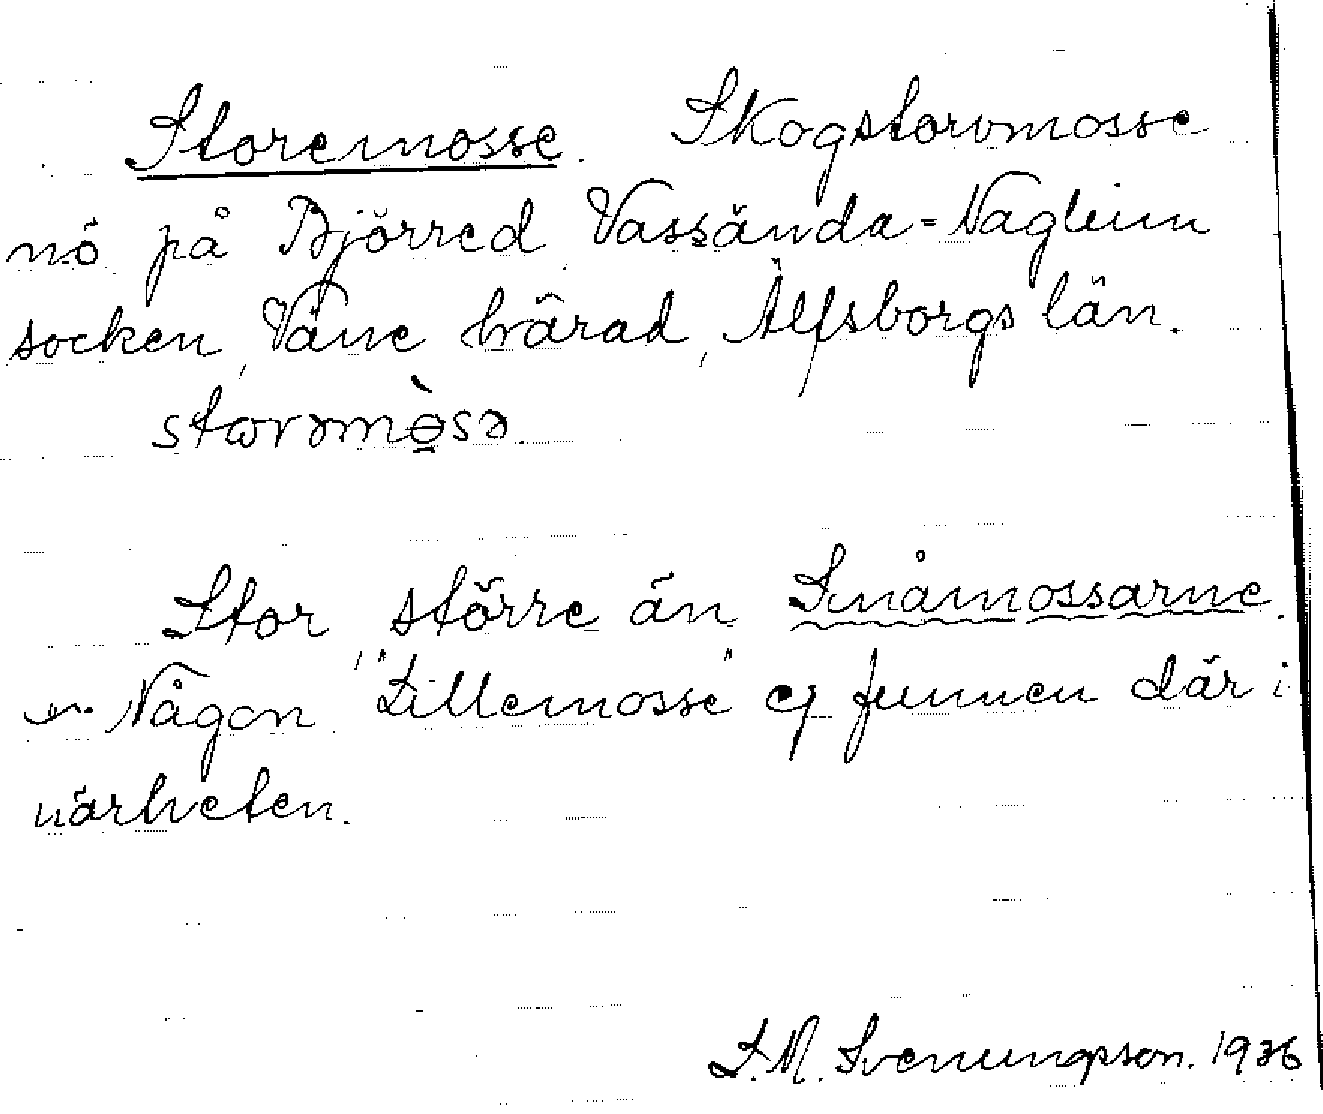 Storemosse. Skogstorvmosse
nö på Björred Vassända-Naglum
socken, Väne härad, Älfsborgs län.
starəmòsə
Stor, större än Småmossarne.
Någon "Lillemosse" ej funnen där i
närheten.
S. M. Svenungsson. 1936